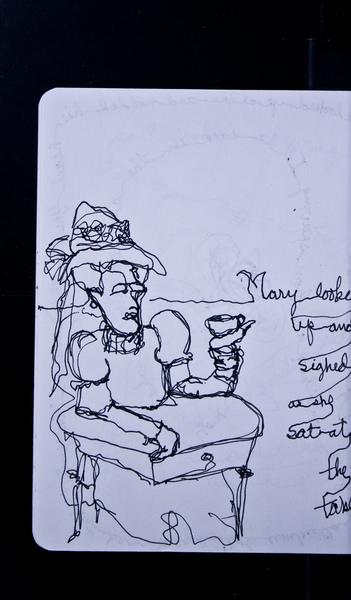 Mary looke
up and
sighed
as she
sat at
the